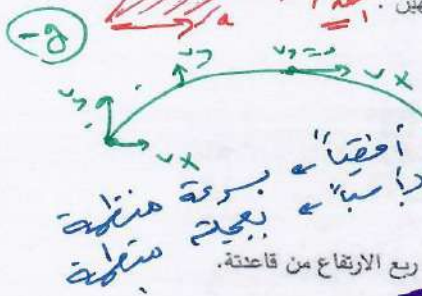 هين .
a
-g
vy
vy = 0
vx
vy
vx
أفقياً ← بسرعة منتظمة
رأسياً ← بعجلة منتظمة
ربع الارتفاع من قاعدتة.